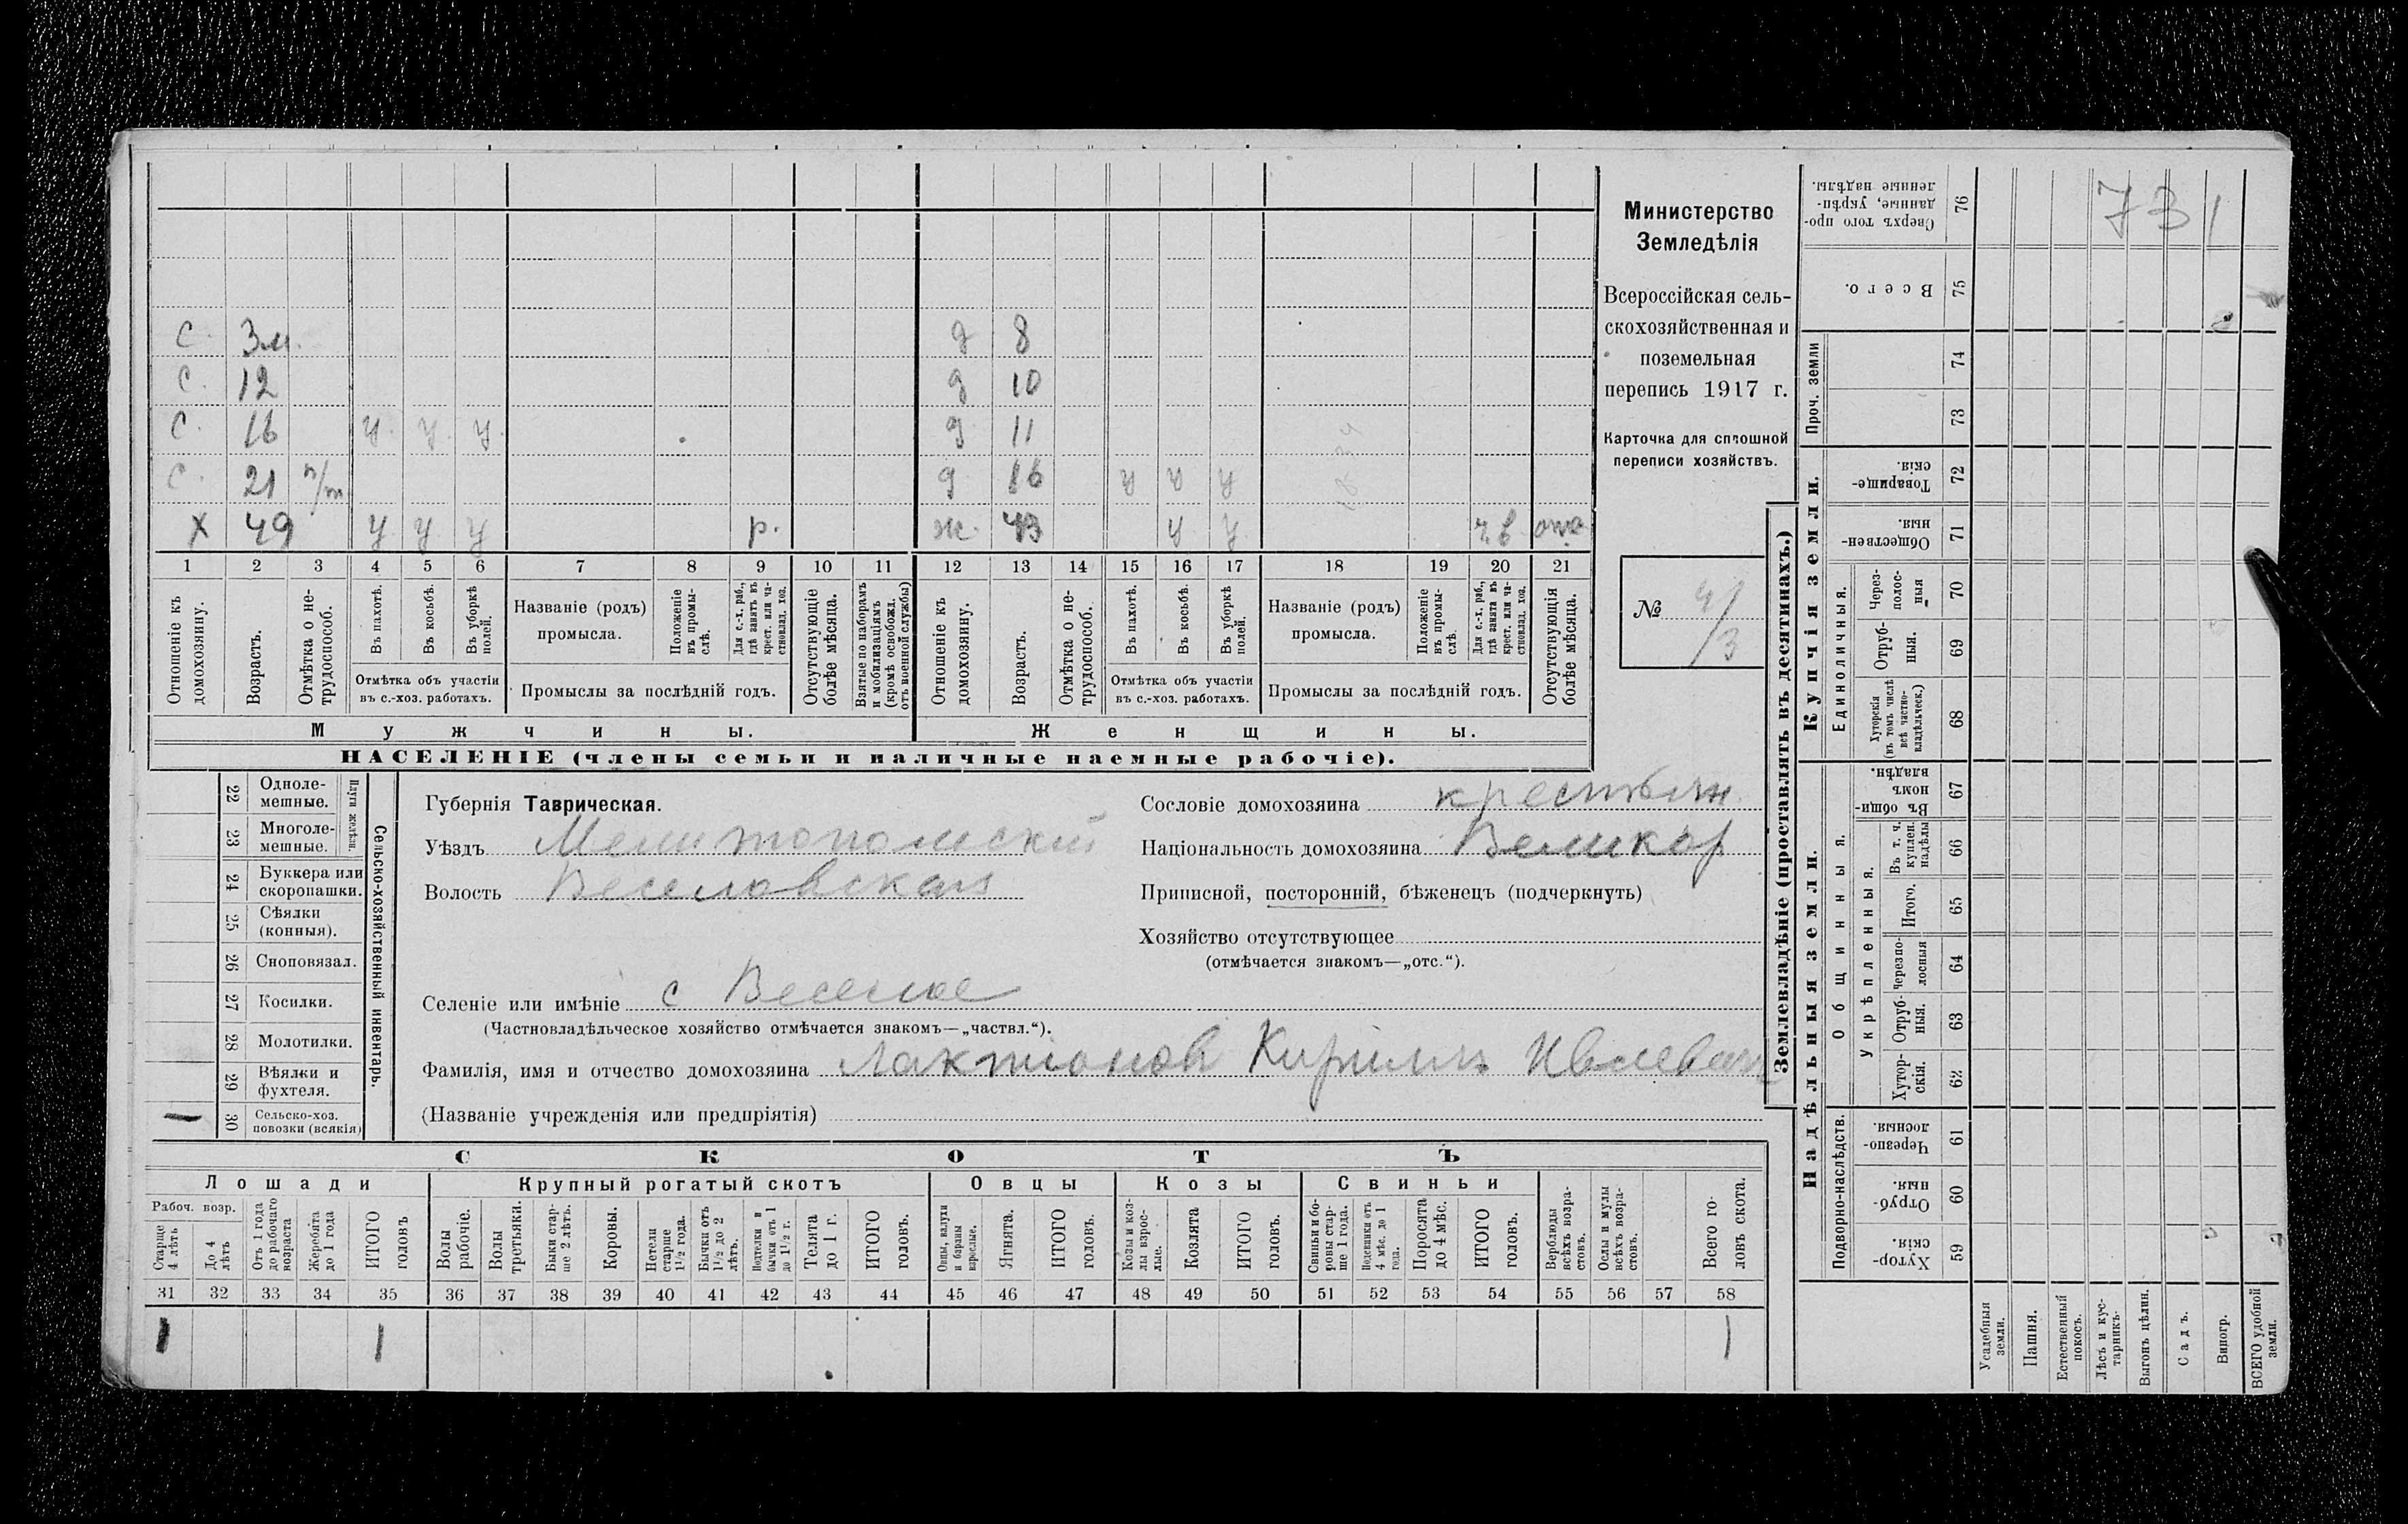 С. 3м. д 8
С. 12 д 10
С. 16 у. у. у. д 11
С. 21 н/т д 16 у у у
Х 49 у у у р. ж. 43 у у ч.в. отс
1 2 3 4 5 6 7 8 9 10 11 12 13 14 15 16 17 18 19 20 21
Отношеніе къ домохозяину.
Возрастъ.
Отмѣтка о не-трудоспособ.
Въ пахотѣ.
Въ косьбѣ.
Въ уборкѣ полей.
Отмѣтка объ участіи въ с.-хоз. работахъ.
Названіе (родъ) промысла.
Положеніе въ промы-слѣ.
Для с.-х. раб., гдѣ занятъ въ крест. или ча-стновлад. хоз.
Промыслы за послѣдній годъ.
Отсутствующіе болѣе мѣсяца.
Взятые по наборамъ и мобилизаціямъ (кромѣ освобожд. отъ военной службы)
Отношеніе къ домохозяину.
Возрастъ.
Отмѣтка о не-трудоспособ.
Въ пахотѣ.
Въ косьбѣ.
Въ уборкѣ полей.
Отмѣтка объ участіи въ с.-хоз. работахъ.
Названіе (родъ) промысла.
Положеніе въ промы-слѣ.
Для с.-х. раб., гдѣ занята въ крест. или ча-стновлад. хоз.
Промыслы за послѣдній годъ.
Отсутствующія болѣе мѣсяца.
Мужчины.
Женщины.
НАСЕЛЕНІЕ (члены семьи и наличные наемные рабочіе).
Министерство
Земледѣлія
Всероссійская сель-
скохозяйственная и
поземельная
перепись 1917 г.
Карточка для сплошной
переписи хозяйствъ.
№
22 Однолемешные.
23 Многолемешные.
Плуги желѣзн.
24 Буккера или скоропашки.
25 Сѣялки (конныя).
26 Сноповязал.
27 Косилки.
28 Молотилки.
29 Вѣялки и фухтеля.
1 30 Сельско-хоз. повозки (всякія)
Сельско-хозяйственный инвентарь.
Губернія Таврическая.
Уѣздъ Мелитопольскій
Волость Веселовская
Селеніе или имѣніе с Веселое
(Частновладѣльческое хозяйство отмѣчается знакомъ—„частвл.“).
Фамилія, имя и отчество домохозяина Лактіоновъ Кириллъ
(Названіе учрежденія или предпріятія)
Сословіе домохозяина крестьян.
Національность домохозяина Великор
Приписной, посторонній, бѣженецъ (подчеркнуть)
Хозяйство отсутствующее
(отмѣчается знакомъ—„отс.“).
СКОТЪ
Лошади Крупный рогатый скотъ Овцы Козы Свиньи
Рабоч. возр.
Старше 4 лѣтъ
До 4 лѣтъ
Отъ 1 года до рабочаго возраста
Жеребята до 1 года
ИТОГО головъ
Волы рабочіе.
Волы третьяки.
Быки стар-ше 2 лѣтъ.
Коровы.
Нетели старше 1 1/2 года.
Бычки отъ 1 1/2 до 2 лѣтъ.
Подтелки и бычки отъ 1 до 1 1/2 г.
Телята до 1 г.
ИТОГО головъ.
Овцы, валухи и бараны взрослые.
Ягнята.
ИТОГО головъ.
Козы и коз-лы взрос-лые.
Козлята
ИТОГО головъ.
Свиньи и бо-ровы стар-ше 1 года.
Подсвинки отъ 4 мѣс. до 1 года.
Поросята до 4 мѣс.
ИТОГО головъ.
Верблюды всѣхъ возра-стовъ.
Ослы и мулы всѣхъ возра-стовъ.
Всего го-ловъ скота.
31 32 33 34 35 36 37 38 39 40 41 42 43 44 45 46 47 48 49 50 51 52 53 54 55 56 57 58
1 1 1
Землевладѣніе (проставлять въ десятинахъ.)
Купчія земли.
Надѣльныя земли.
Сверхъ того про-данные, укрѣп-ленные надѣлы. 76
731
Всего. 75
Проч. земли 74 73
Товарище-скія. 72
Обществен-ныя. 71
Единоличныя.
Через-полос-ныя 70
Отруб-ныя. 69
Хуторскія (въ томъ числѣ всѣ частно-владѣльческ.) 68
Въ общин-номъ владѣн. 67
Общинныя.
Укрѣпленныя.
Въ т. ч. куплен. надѣлы 66
Итого. 65
Черезпо-лосныя 64
Отруб-ныя. 63
Хутор-скія. 62
Подворно-наслѣдств.
Черезпо-лосныя. 61
Отруб-ныя. 60
Хутор-скія. 59
Усадебныя земли.
Пашня.
Естественный покосъ.
Лѣсъ и кус-тарникъ.
Выгонъ цѣлин.
Садъ.
Виногр.
ВСЕГО удобной земли.